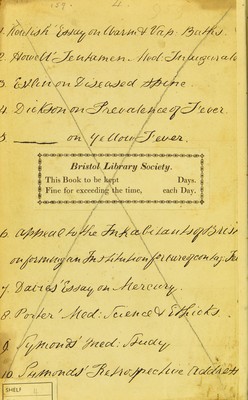 4
1. Kentish' Essay on Warm & Vap: Baths.
2. Howell' Tentamen. Med: Inaugurale
3. Estlin on Diseased Spine.
4. Dickson on Prevalence of Fever.
5 ——— on Yellow Fever.
Bristol Library Society.
This Book to be kept Days.
Fine for exceeding the time, each Day.
6. Appeal to the Inhabitants of Bris
on forming an Institution for
7. Davies' Essay on Mercury.
8. Porter' Med: Science & Ethicks.
9. Symonds' Med: Study
10. Symonds' Retrospective Address
SHELF